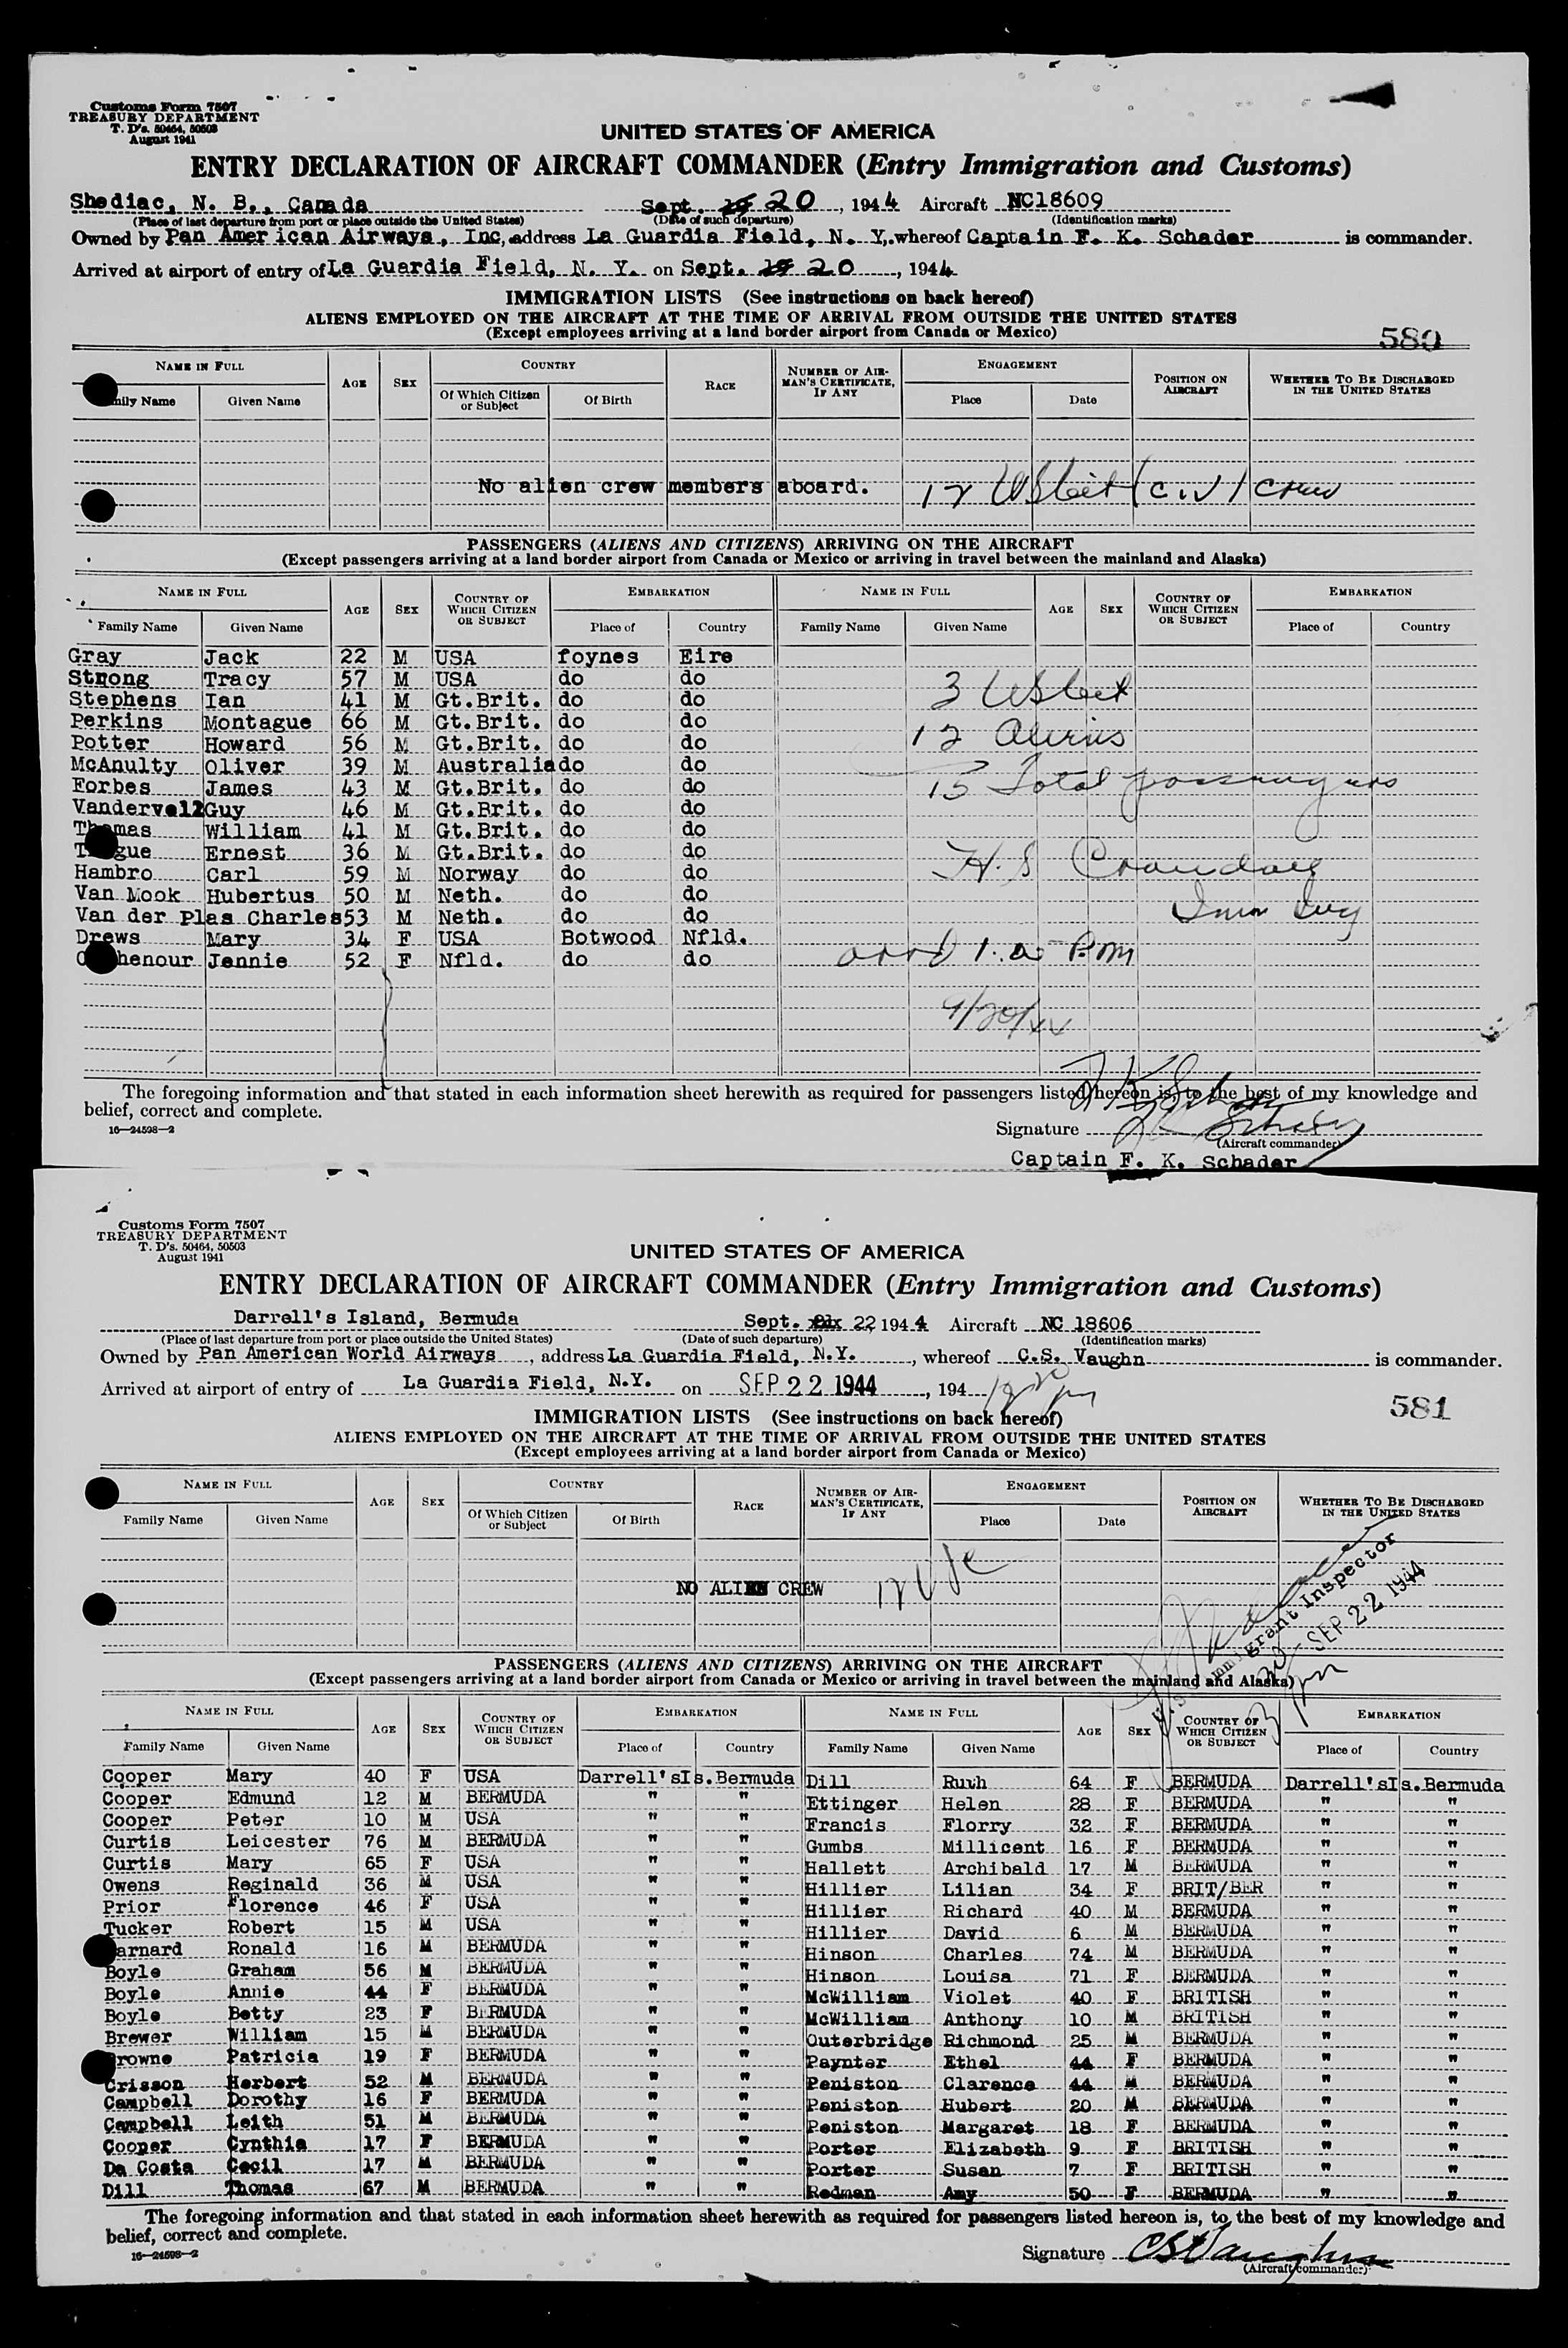 Customs Form 7507
TREASURY DEPARTMENT
T. D's. 50464, 50503
August 1941
UNITED STATES OF AMERICA
ENTRY DECLARATION OF AIRCRAFT COMMANDER (Entry Immigration and Customs)
Shediac, N. B., Canada Sept. 20, 1944 Aircraft NC18609
(Place of last departure from port or place outside the United States) (Date of such departure) (Identification marks)
Owned by Pan American Airways, Inc, address La Guardia Field, N. Y. whereof Captain F. K. Schader is commander.
Arrived at airport of entry of La Guardia Field, N. Y. on Sept. 20, 1944
IMMIGRATION LISTS (See instructions on back hereof)
ALIENS EMPLOYED ON THE AIRCRAFT AT THE TIME OF ARRIVAL FROM OUTSIDE THE UNITED STATES
(Except employees arriving at a land border airport from Canada or Mexico)
580
NAME IN FULL AGE SEX COUNTRY RACE NUMBER OF AIRMAN'S CERTIFICATE, IF ANY ENGAGEMENT POSITION ON AIRCRAFT WHETHER TO BE DISCHARGED IN THE UNITED STATES
Family Name Given Name Of Which Citizen or Subject Of Birth Place Date
No alien crew members aboard. 12 US crew
PASSENGERS (ALIENS AND CITIZENS) ARRIVING ON THE AIRCRAFT
(Except passengers arriving at a land border airport from Canada or Mexico or arriving in travel between the mainland and Alaska)
NAME IN FULL AGE SEX COUNTRY OF WHICH CITIZEN OR SUBJECT EMBARKATION NAME IN FULL AGE SEX COUNTRY OF WHICH CITIZEN OR SUBJECT EMBARKATION
Family Name Given Name Place of Country Family Name Given Name Place of Country
Gray Jack 22 M USA foynes Eire
Strong Tracy 57 M USA do do
Stephens Ian 41 M Gt.Brit. do do
3 US
Perkins Montague 66 M Gt.Brit. do do
Potter Howard 56 M Gt.Brit. do do
12 Aliens
McAnulty Oliver 39 M Australia do do
Forbes James 43 M Gt.Brit. do do
15 Total passengers
Vandervell Guy 46 M Gt.Brit. do do
Thomas William 41 M Gt.Brit. do do
T gue Ernest 36 M Gt.Brit. do do
Hambro Carl 59 M Norway do do
H. S Crandall
Van Mook Hubertus 50 M Neth. do do
Van der Plas Charles 53 M Neth. do do
Drews Mary 34 F USA Botwood Nfld.
henour Jennie 52 F Nfld. do do
9/20/44
The foregoing information and that stated in each information sheet herewith as required for passengers listed hereon is, to the best of my knowledge and
belief, correct and complete.
16—24598—2
Signature
(Aircraft commander)
Captain F. K. Schader
Customs Form 7507
TREASURY DEPARTMENT
T. D's. 50464, 50503
August 1941
UNITED STATES OF AMERICA
ENTRY DECLARATION OF AIRCRAFT COMMANDER (Entry Immigration and Customs)
Darrell's Island, Bermuda Sept. 22, 1944 Aircraft NC 18606
(Place of last departure from port or place outside the United States) (Date of such departure) (Identification marks)
Owned by Pan American World Airways, address La Guardia Field, N.Y., whereof C.S. Vaughn is commander.
Arrived at airport of entry of La Guardia Field, N.Y. on SEP 22 1944, 194
581
IMMIGRATION LISTS (See instructions on back hereof)
ALIENS EMPLOYED ON THE AIRCRAFT AT THE TIME OF ARRIVAL FROM OUTSIDE THE UNITED STATES
(Except employees arriving at a land border airport from Canada or Mexico)
NAME IN FULL AGE SEX COUNTRY RACE NUMBER OF AIRMAN'S CERTIFICATE, IF ANY ENGAGEMENT POSITION ON AIRCRAFT WHETHER TO BE DISCHARGED IN THE UNITED STATES
Family Name Given Name Of Which Citizen or Subject Of Birth Place Date
NO ALIEN CREW
Immigrant Inspector
SEP 22 1944
PASSENGERS (ALIENS AND CITIZENS) ARRIVING ON THE AIRCRAFT
(Except passengers arriving at a land border airport from Canada or Mexico or arriving in travel between the mainland and Alaska)
NAME IN FULL AGE SEX COUNTRY OF WHICH CITIZEN OR SUBJECT EMBARKATION NAME IN FULL AGE SEX COUNTRY OF WHICH CITIZEN OR SUBJECT EMBARKATION
Family Name Given Name Place of Country Family Name Given Name Place of Country
Cooper Mary 40 F USA Darrell's Is. Bermuda Dill Ruth 64 F BERMUDA Darrell's Is. Bermuda
Cooper Edmund 12 M BERMUDA " " Ettinger Helen 28 F BERMUDA " "
Cooper Peter 10 M USA " " Francis Florry 32 F BERMUDA " "
Curtis Leicester 76 M BERMUDA " " Gumbs Millicent 16 F BERMUDA " "
Curtis Mary 65 F USA " " Hallett Archibald 17 M BERMUDA " "
Owens Reginald 36 M USA " " Hillier Lilian 34 F BRIT/BER " "
Prior Florence 46 F USA " " Hillier Richard 40 M BERMUDA " "
Tucker Robert 15 M USA " " Hillier David 6 M BERMUDA " "
arnard Ronald 16 M BERMUDA " " Hinson Charles 74 M BERMUDA " "
Boyle Graham 56 M BERMUDA " " Hinson Louisa 71 F BERMUDA " "
Boyle Annie 44 F BERMUDA " " McWilliam Violet 40 F BRITISH " "
Boyle Betty 23 F BERMUDA " " McWilliam Anthony 10 M BRITISH " "
Brewer William 15 M BERMUDA " " Outerbridge Richmond 25 M BERMUDA " "
rowne Patricia 19 F BERMUDA " " Paynter Ethel 44 F BERMUDA " "
Crisson Herbert 52 M BERMUDA " " Peniston Clarence 44 M BERMUDA " "
Campbell Dorothy 16 F BERMUDA " " Peniston Hubert 20 M BERMUDA " "
Campbell Leith 51 M BERMUDA " " Peniston Margaret 18 F BERMUDA " "
Cooper Cynthia 17 F BERMUDA " " Porter Elizabeth 9 F BRITISH " "
Da Costa Cecil 17 M BERMUDA " " Porter Susan 7 F BRITISH " "
Dill Thomas 67 M BERMUDA " " Redman Amy 50 F BERMUDA " "
The foregoing information and that stated in each information sheet herewith as required for passengers listed hereon is, to the best of my knowledge and
belief, correct and complete.
16—24598—2
Signature CS Vaughn
(Aircraft commander)